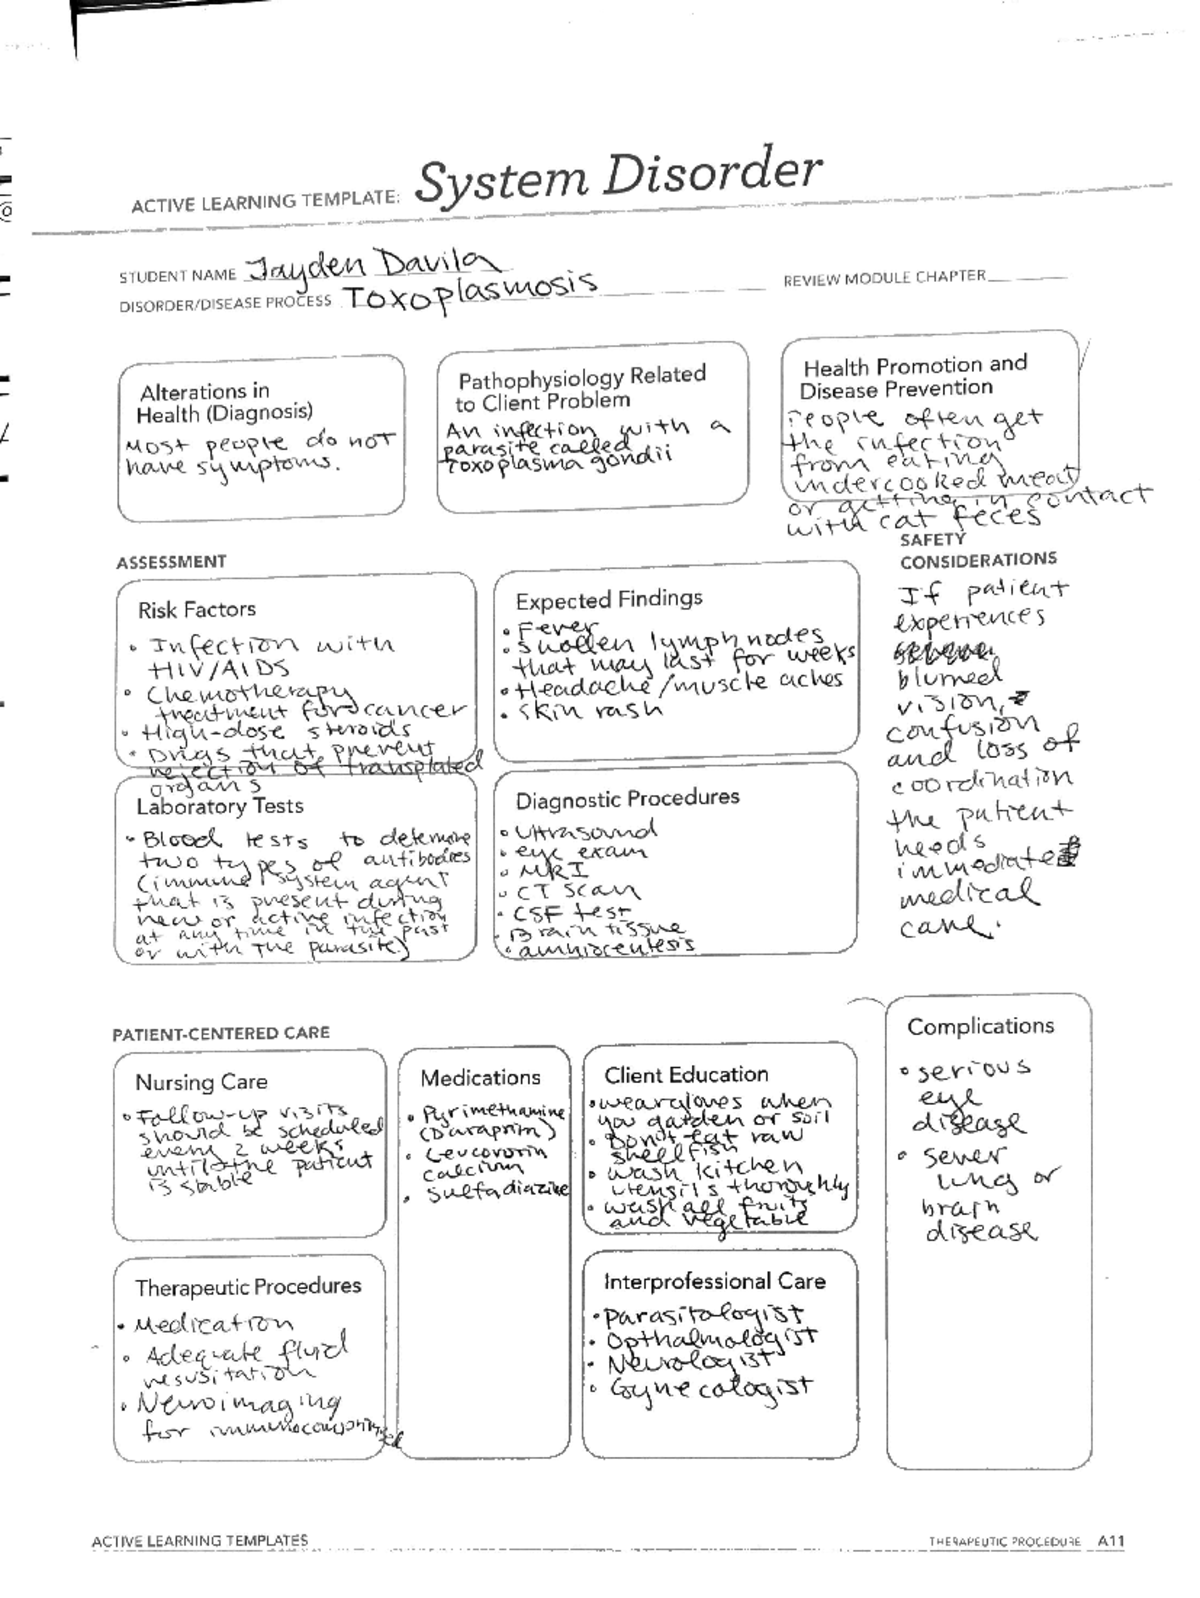 ACTIVE LEARNING TEMPLATE: System Disorder
STUDENT NAME Jayden Davila
DISORDER/DISEASE PROCESS Toxoplasmosis
REVIEW MODULE CHAPTER
Alterations in
Health (Diagnosis)
Most people do not
have symptoms.
Pathophysiology Related
to Client Problem
An infection with a
parasite called
toxoplasma gondii
Health Promotion and
Disease Prevention
People often get
the infection
from eating
undercooked meat
or getting in contact
with cat feces
ASSESSMENT
SAFETY
CONSIDERATIONS
Risk Factors
• Infection with
HIV/AIDS
• Chemotherapy
treatment for cancer
• High-dose steroids
• Drugs that prevent
rejection of transplated
organs
Expected Findings
• Fever
• Swollen lymph nodes
that may last for weeks
• Headache/muscle aches
• Skin rash
If patient
experiences
blurred
vision,
confusion
and loss of
coordination
the patient
needs
immediate
medical
care.
Laboratory Tests
• Blood tests to determine
two types of antibodies
(immune system agent
that is present during
new or active infection
at any time in the past
or with the parasite)
Diagnostic Procedures
• Ultrasound
• eye exam
• MRI
• CT scan
• CSF test
• Brain tissue
• amniocentesis
PATIENT-CENTERED CARE
Nursing Care
• Follow-up visits
should be scheduled
every 2 weeks
until the patient
is stable
Medications
• Pyrimethamine
(Daraprim)
• Leucovorin
calcium
• Sulfadiazine
Client Education
• wear gloves when
you garden or soil
• Don't eat raw
shellfish
• wash kitchen
utensils thoroughly
• wash all fruits
and vegetable
Complications
• serious
eye
disease
• sever
lung or
brain
disease
Therapeutic Procedures
• Medication
• Adequate fluid
resusitation
• Neuroimaging
for immunocomprimised
Interprofessional Care
• Parasitologist
• Opthalmologist
• Neurologist
• Gynecologist
ACTIVE LEARNING TEMPLATES
THERAPEUTIC PROCEDURE A11